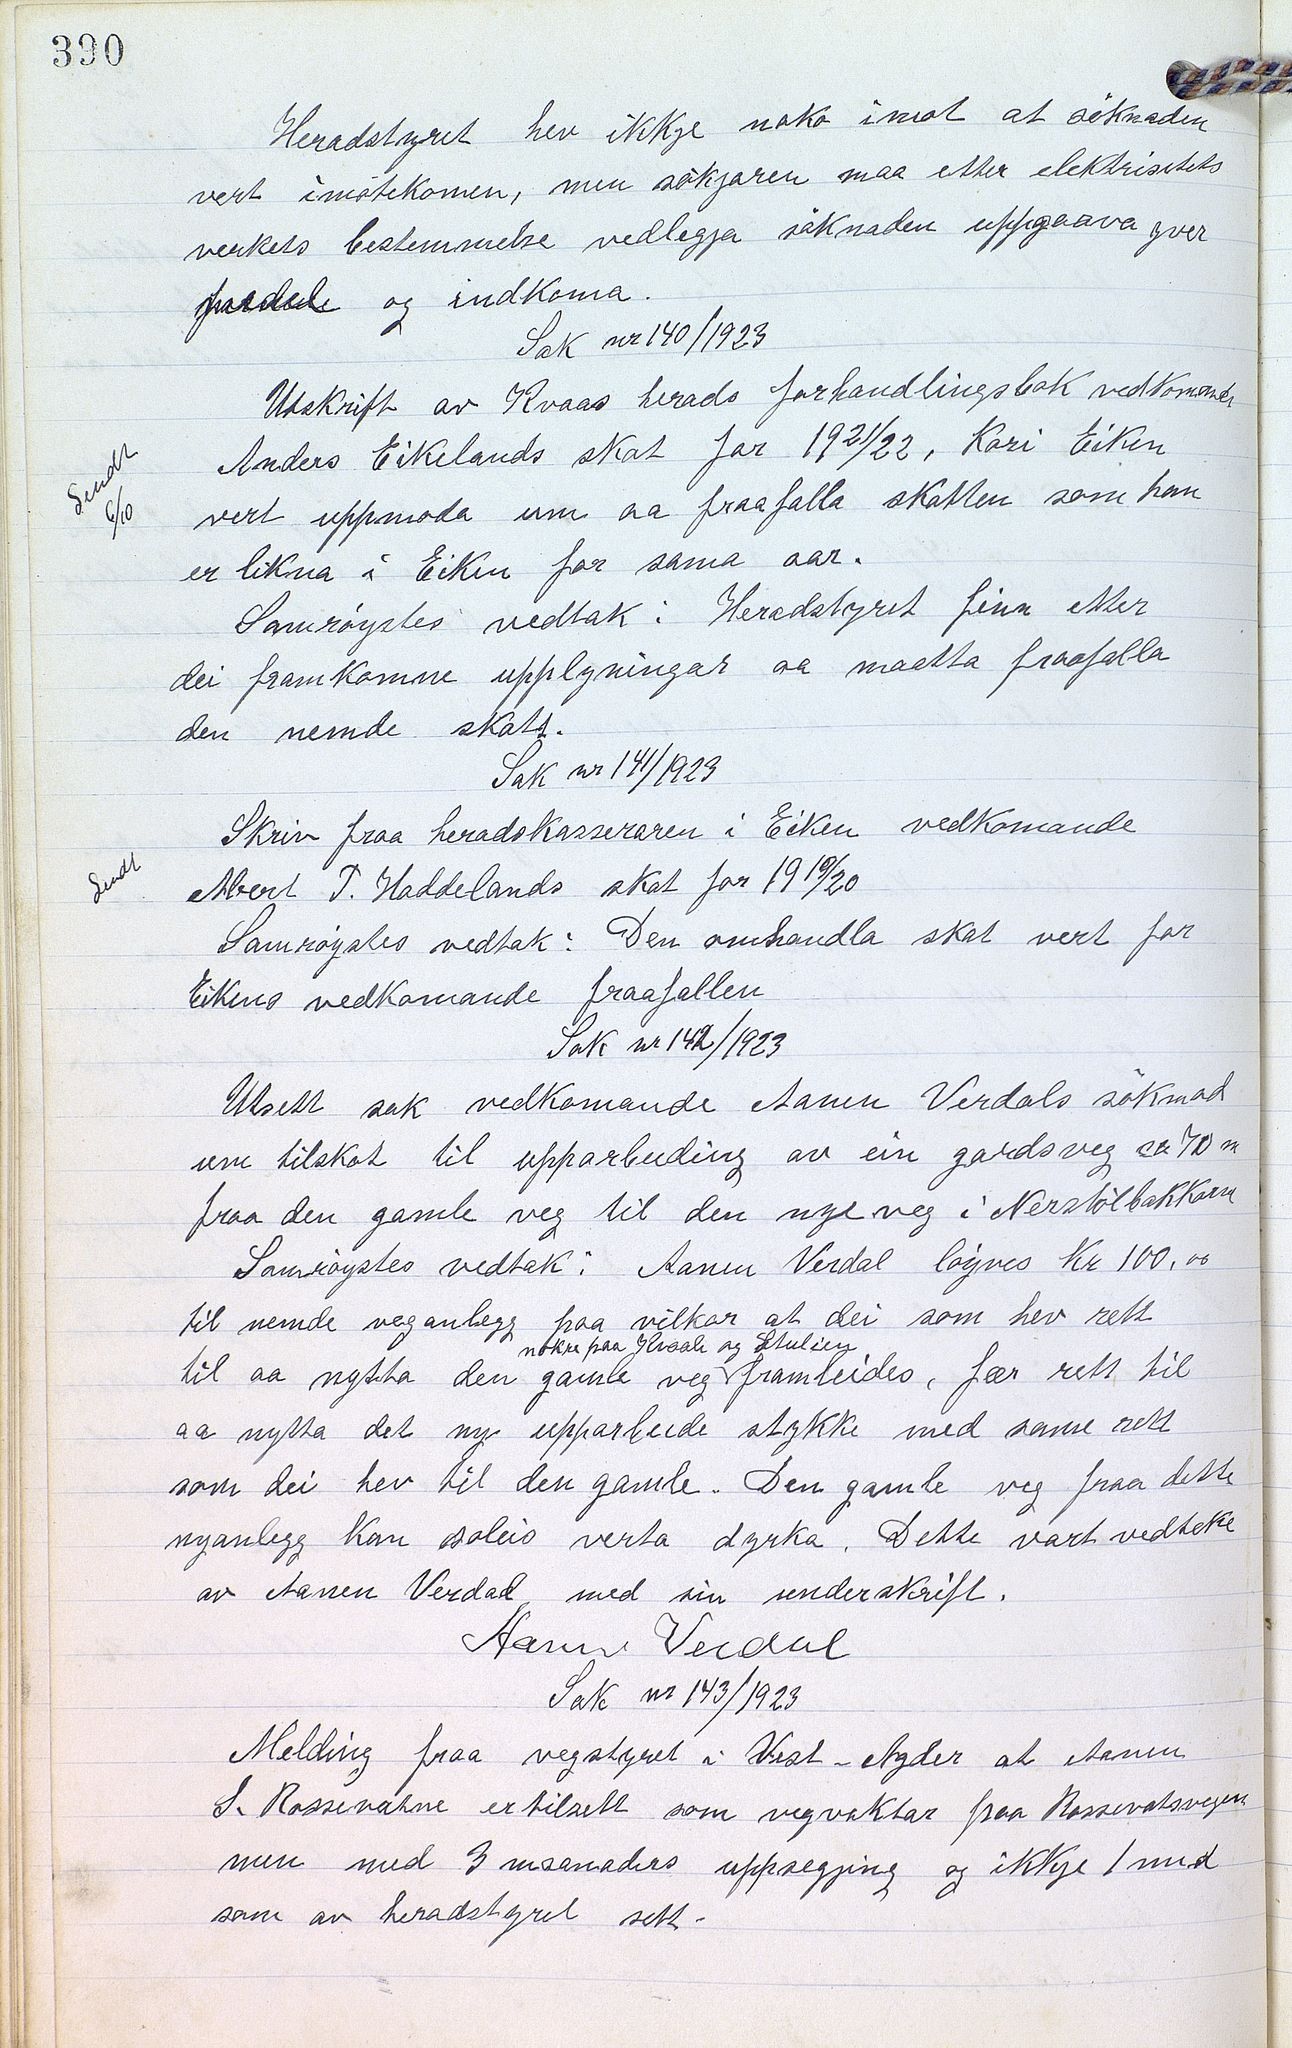 390
Heradstyret hev ikkje noko imot at söknaden
vert imötekomen, men sökjaren maa etter elektrisitets
verkets bestemmelse vedleggja söknaden uppgaava yver
og indkoma.
Sak nr 140/1923
Utskrift av Kvaas herads forhandlingsbok vedkomande
Anders Eikelands skat for 1921/22, Kori Eiken
Sendt
6/10
vert uppmoda um aa fraafalla skatten som han
er likna i Eiken for sama aar.
Samröystes vedtak: Heradstyret finn etter
dei framkomne upplyningar aa maatta fraafalla
den nemde skatt.
Sak nr 141/1923
Skriv fraa heradskasseraren i Eiken vedkomande
Sendt
Albert T. Haddelands skat for 1919/20
Samröystes vedtak: Den omhandla skat vert for
Eikens vedkomande fraafallen
Sak nr 142/1923
Utsett sak vedkomande Aanen Verdals söknad
um tilskot til upparbeiding av ein gardsveg ca 70 m
fraa den gamle veg til den nye veg i Nerstölbakkarne
Samröystes vedtak: Aanen Verdal löyves Kr 100,00
til nemde veganlegg paa vilkor at dei som hev rett
nokre paa og Stulien
til aa nytta den gamle veg framleides, fær rett til
aa nytta det ny upparbeide stykke med same rett
som dei hev til den gamle. Den gamle veg fraa dette
nyanlegg kan soleis verta dyrka. Dette vart vedteke
av Aanen Verdal med sin underskrift.
Aanen Verdal
Sak nr 143/1923
Melding fraa vegstyret i Vest-Agder at Aanen
S. Rossevatne er tilsett som vegvaktar fraa Rossevatsvegen
men med 3 maanaders uppsegjing og ikkje 1 mnd
som av heradstyret sett.